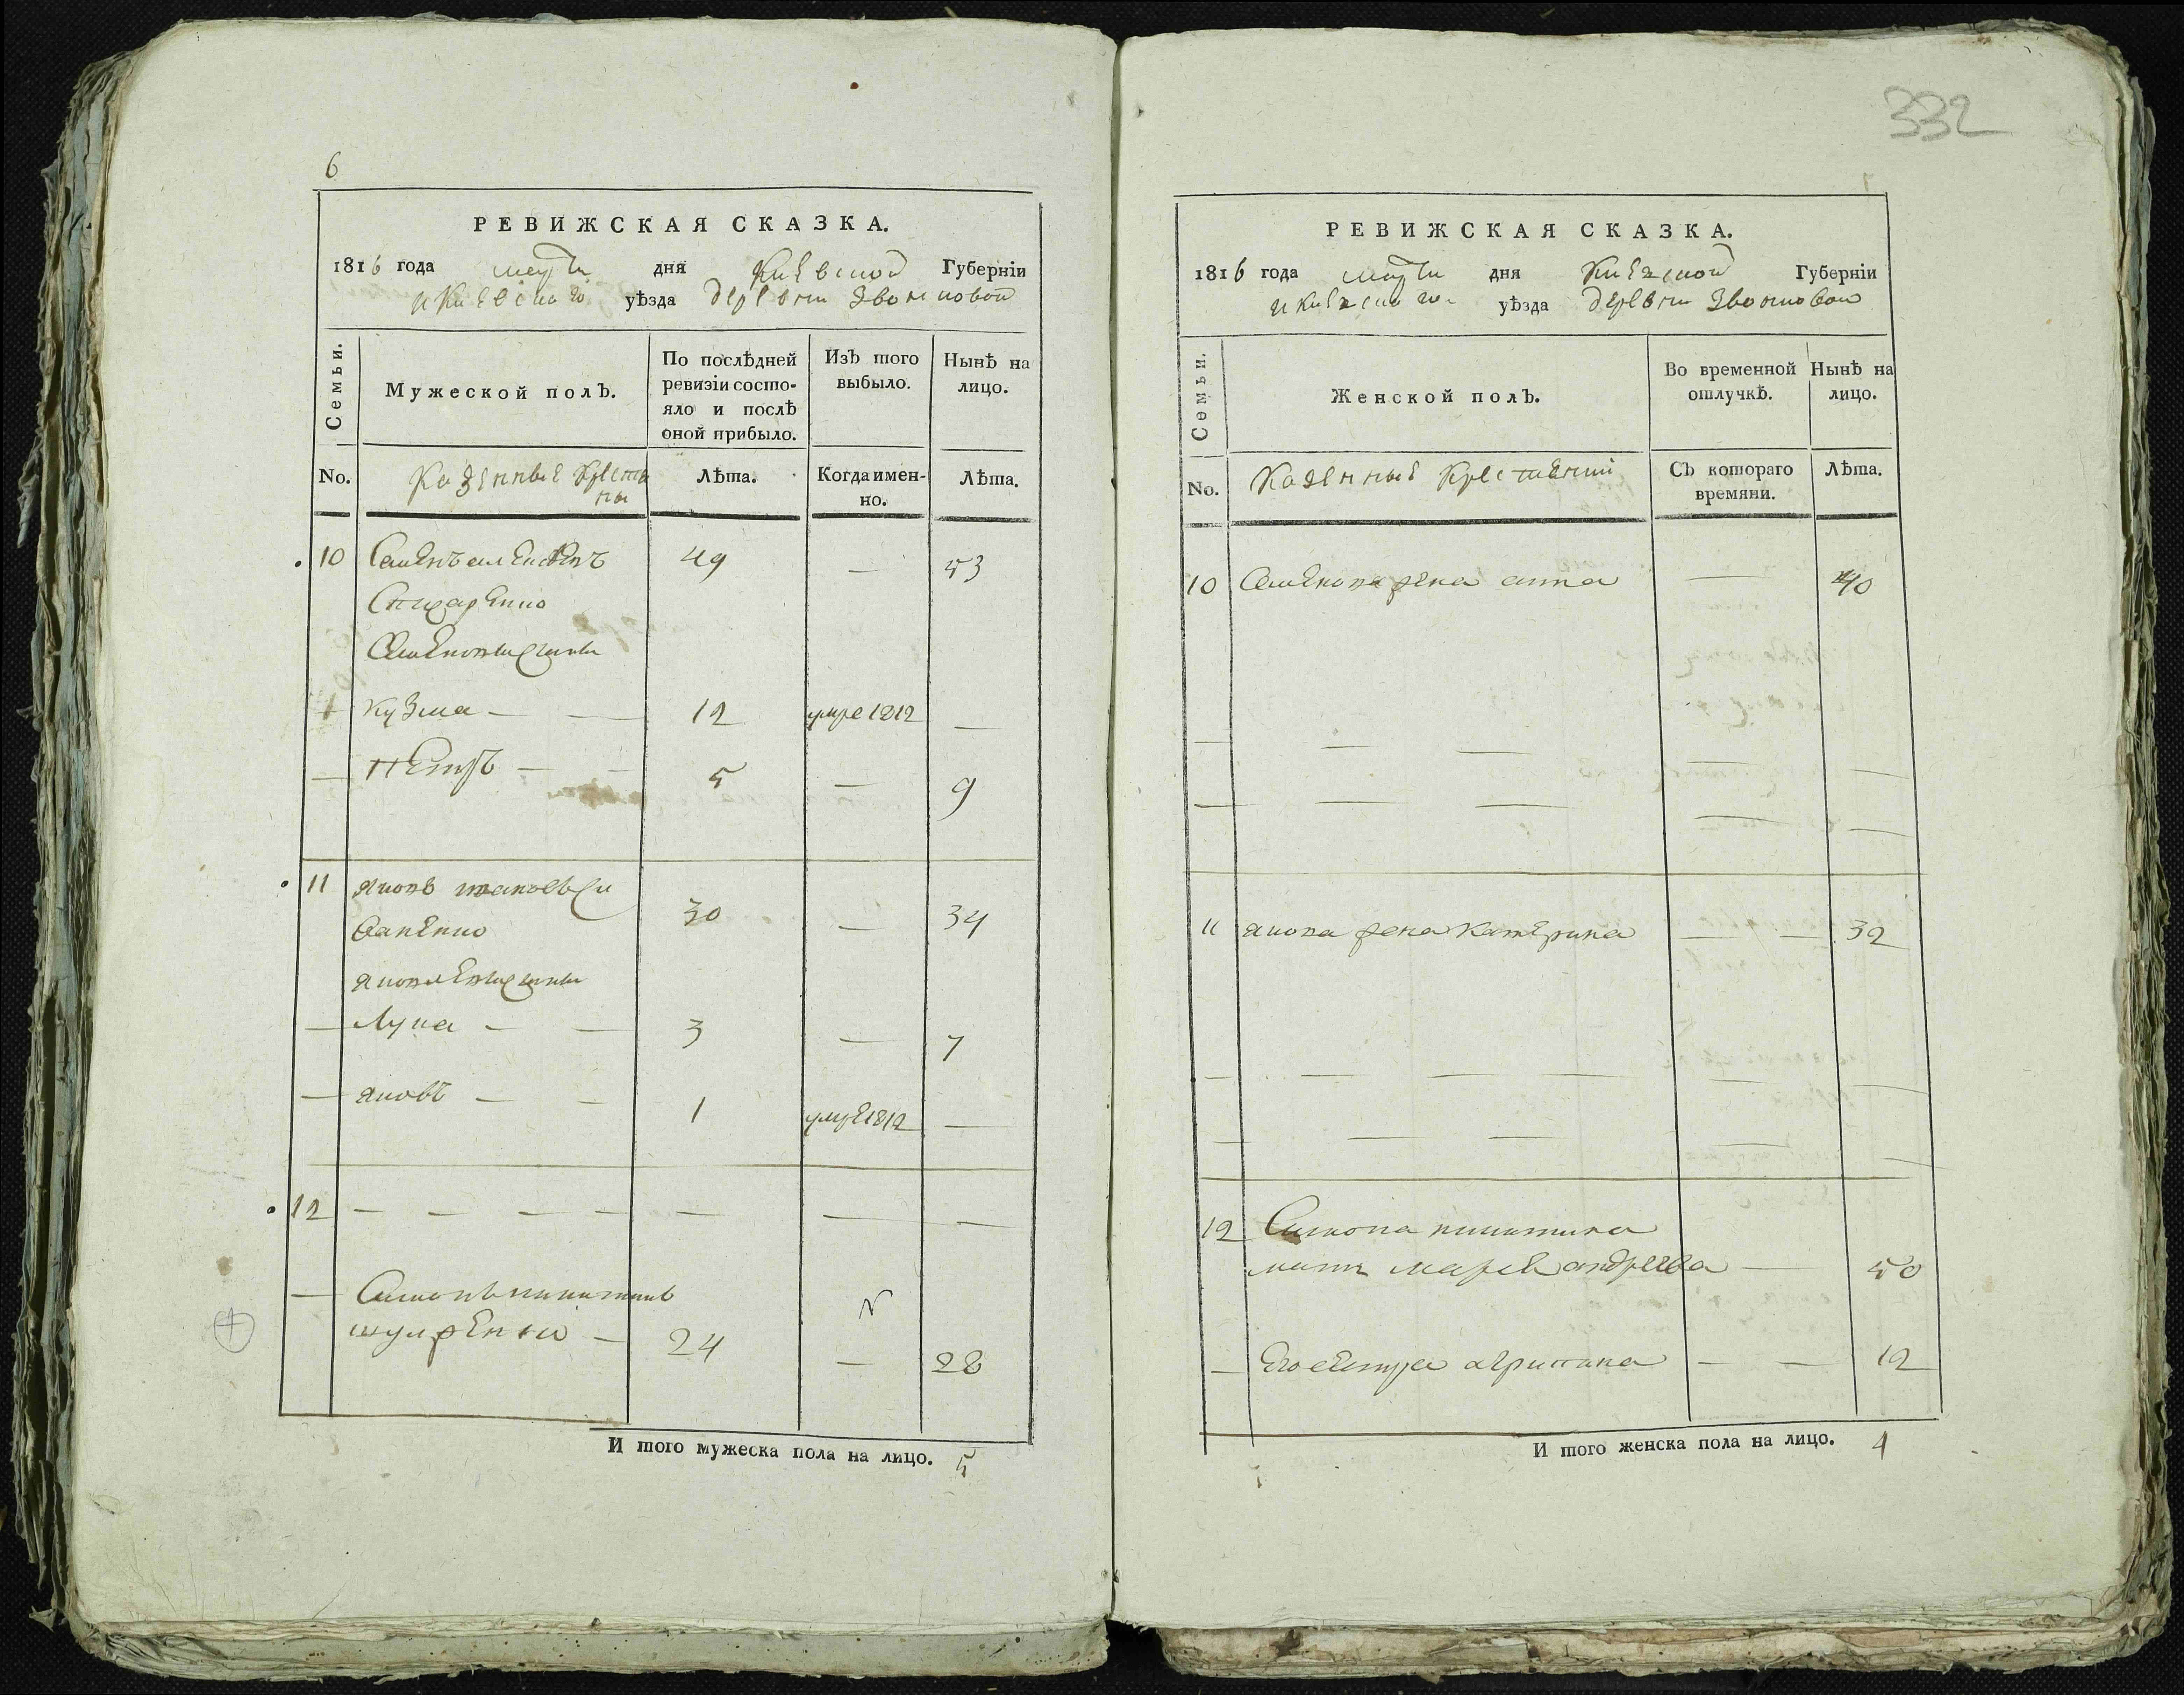 6
РЕВИЖСКАЯ СКАЗКА.
1816 года марта дня Киевской Губерніи
и Киевского уѣзда деревни Звонковой
Семьи.
Мужеской полъ.
По послѣдней ревизіи состояло и послѣ оной прибыло.
Изъ того выбыло.
Нынѣ на лицо.
No.
Казенные крестьяны
Лѣта.
Когда именно.
Лѣта.
10 Семенъ 49 — 53
Семеновы сыны
— Кузма — — 12 умре 1812 —
— Петръ — — 5 — 9
11 Яковъ 30 — 34
Яковлевы сыны
— Лука — — 3 — 7
— Яковъ — — 1 умре 1812 —
12 — — — — — — —
— Симонъ Никитинъ
24 — 28
И того мужеска пола на лицо. 5
332
7
РЕВИЖСКАЯ СКАЗКА.
1816 года марта дня Киевской Губерніи
и Киевского уѣзда деревни Звонковой
Семьи.
Женской полъ.
Во временной отлучкѣ.
Нынѣ на лицо.
No.
Казенные крестьяны
Съ котораго времяни.
Лѣта.
10 Семенова жена анна — 40
11 Якова жена Катерина — — 32
12 Симона никитина
мать андреева — 50
— Его сестра агрипина — — 12
И того женска пола на лицо. 4